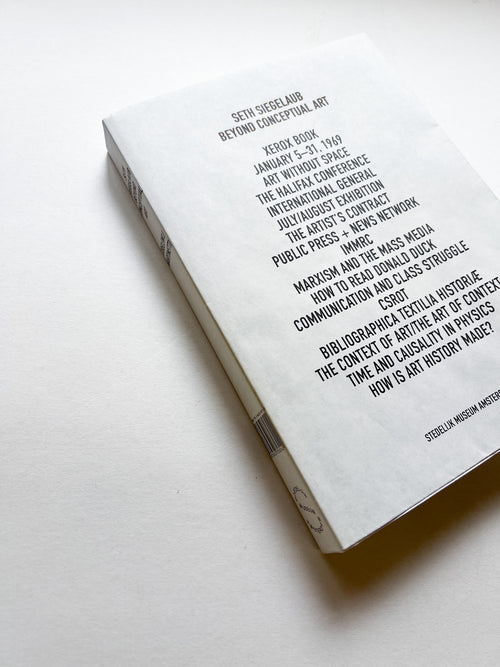 SETH SIEGELAUB
BEYOND CONCEPTUAL ART
XEROX BOOK
JANUARY 5–31, 1969
ART WITHOUT SPACE
THE HALIFAX CONFERENCE
INTERNATIONAL GENERAL
JULY/AUGUST EXHIBITION
THE ARTIST'S CONTRACT
PUBLIC PRESS + NEWS NETWORK
IMMRC
MARXISM AND THE MASS MEDIA
HOW TO READ DONALD DUCK
COMMUNICATION AND CLASS STRUGGLE
CSROT
BIBLIOGRAPHICA TEXTILIA HISTORIÆ
THE CONTEXT OF ART/THE ART OF CONTEXT
TIME AND CAUSALITY IN PHYSICS
HOW IS ART HISTORY MADE?
STEDELIJK MUSEUM AMSTER